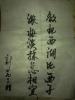 欲把西湖比西子
淡妝濃抹總相宜